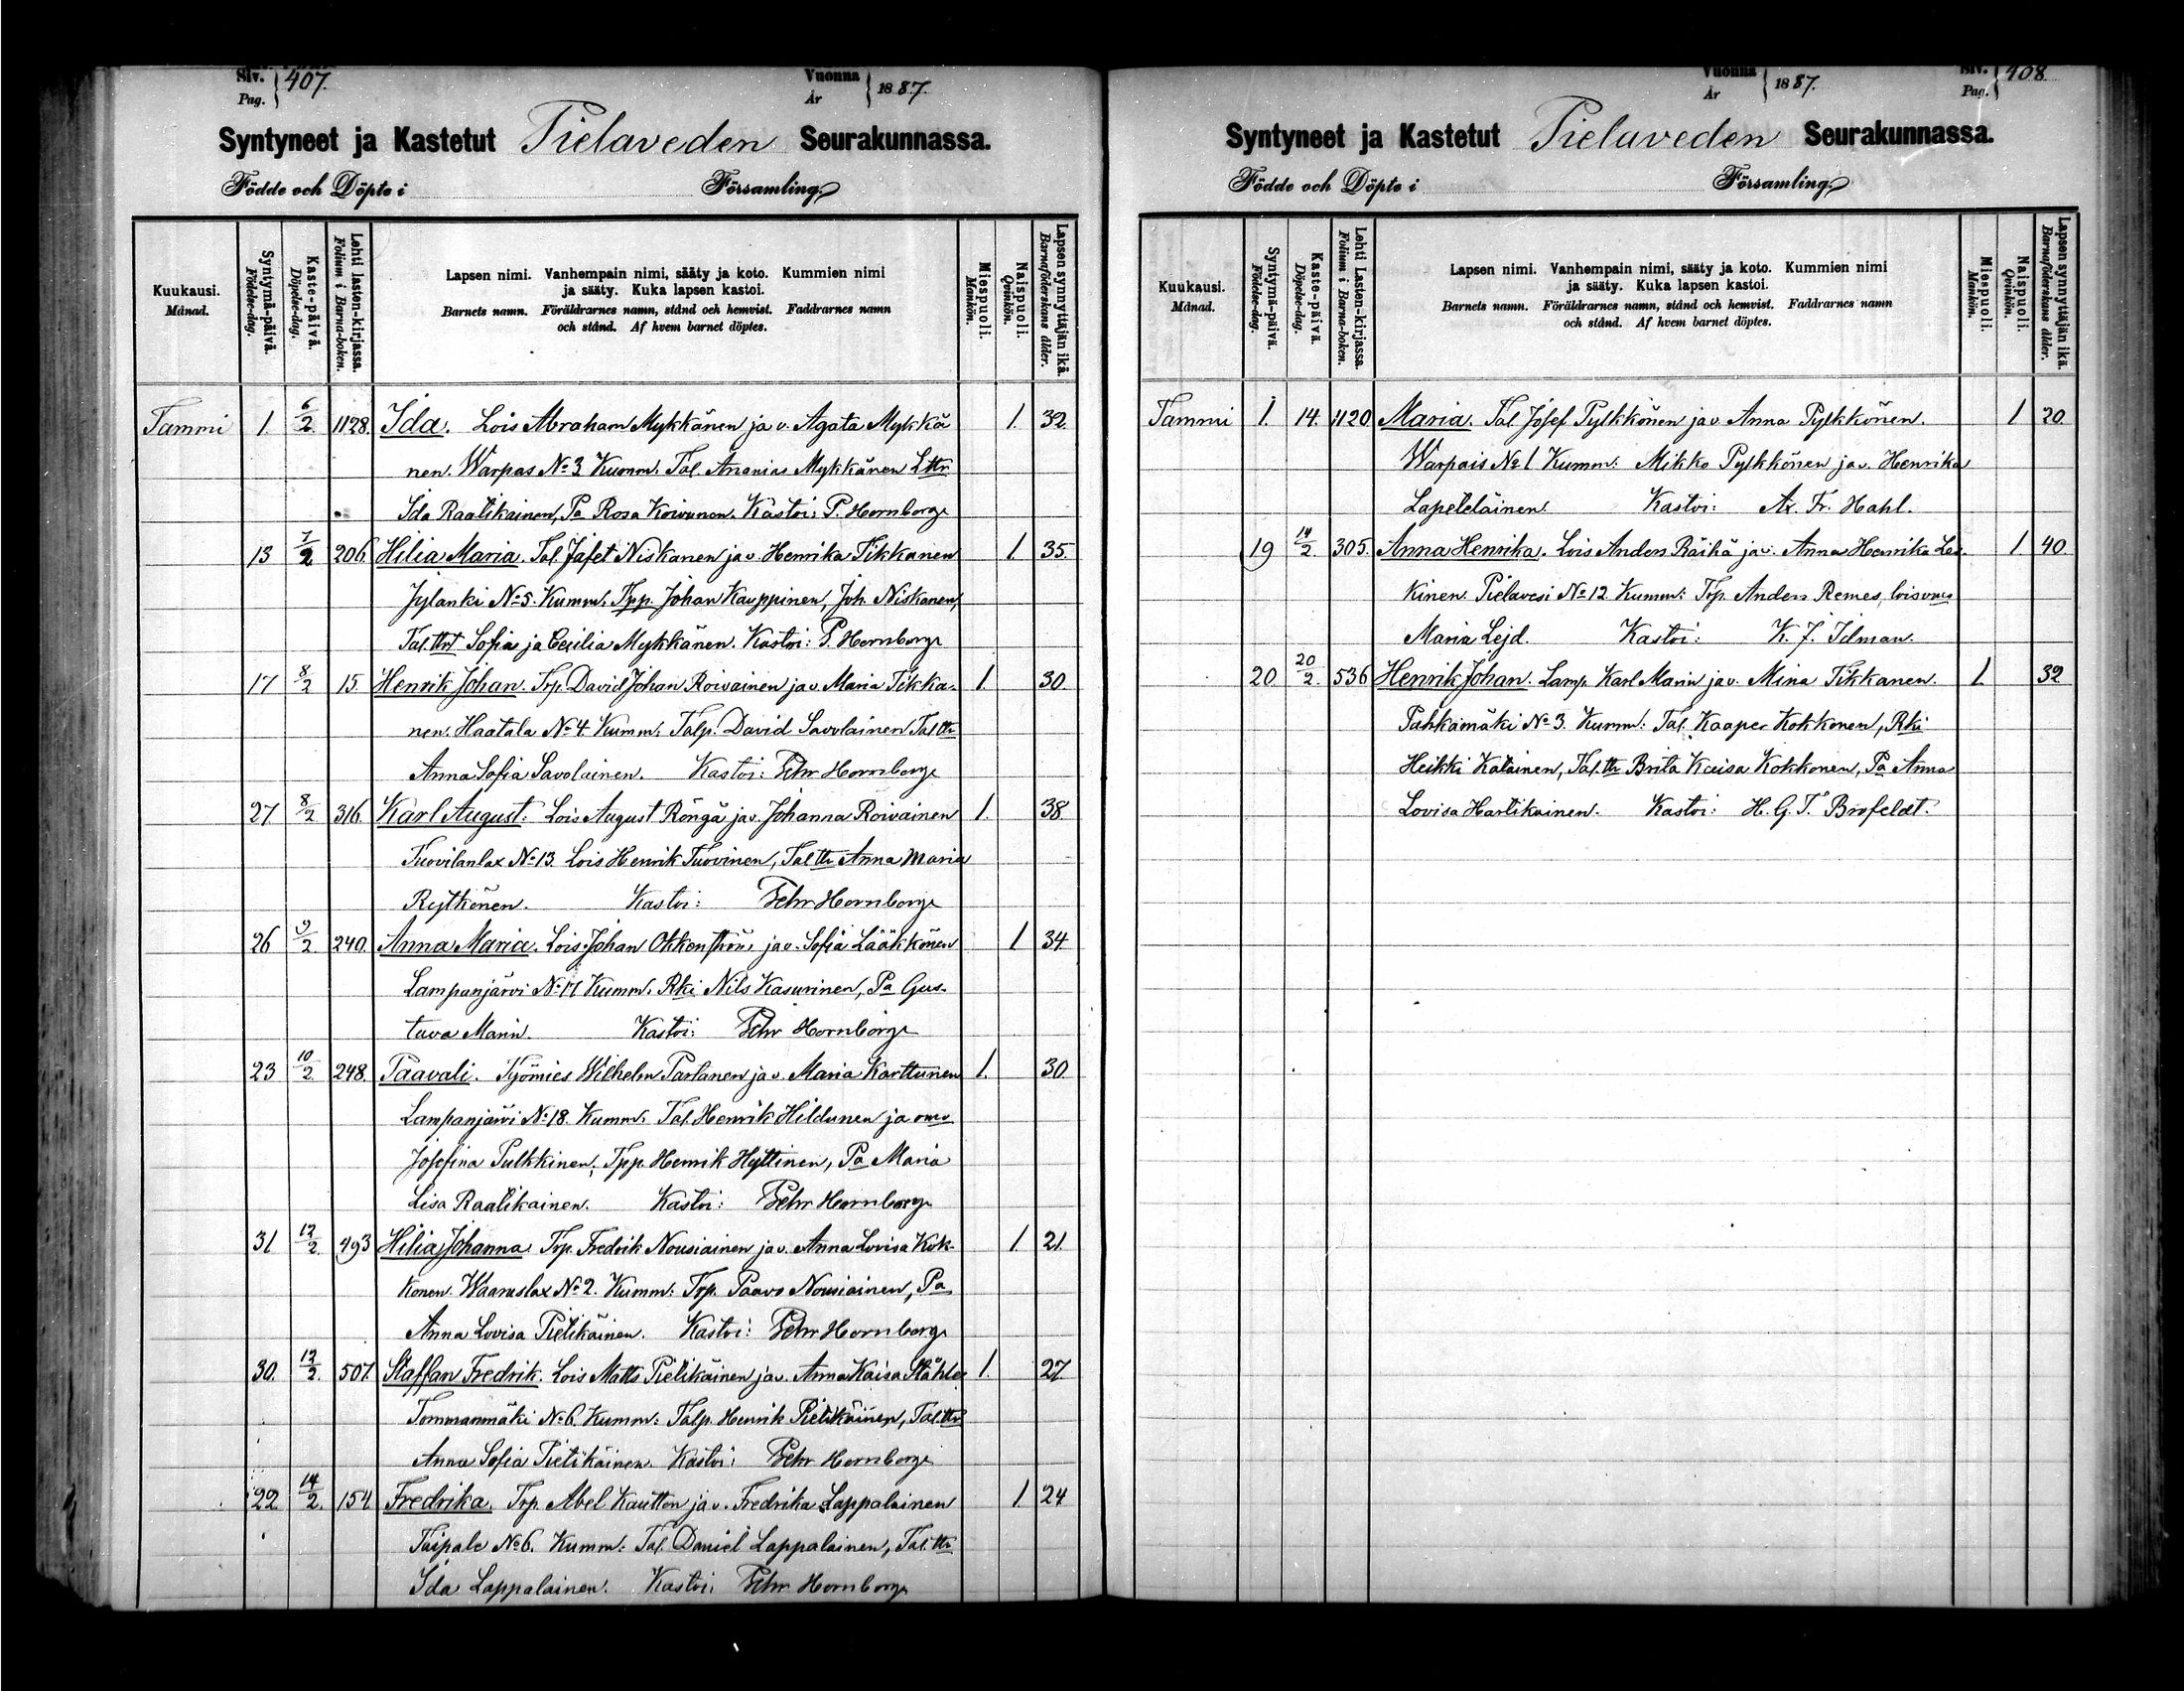 Siv. Pag. 407. Vuonna År 1887.
Syntyneet ja Kastetut Pielaveden Seurakunnassa.
Födde och Döpte i Församling.
Kuukausi. Månad.
Syntymä-päivä. Födelse-dag.
Kaste-päivä. Döpelse-dag.
Lehti lasten-kirjassa. Folium i Barna-boken.
Lapsen nimi. Vanhempain nimi, sääty ja koto. Kummien nimi
ja sääty. Kuka lapsen kastoi.
Barnets namn. Föräldrarnes namn, stånd och hemvist. Faddrarnes namn
och stånd. Af hvem barnet döptes.
Miespuoli. Mankön.
Naispuoli. Qvinkön.
Lapsen synnyttäjän ikä. Barnaföderskans ålder.
Tammi 1. 6/2 1128. Ida. Lois Abraham Mykkänen ja v. Agata Mykkä 1. 32
nen. Warpas No 3 Kumm. Tal. Ananias Mykkänen Lttr
Ida Raatikainen, Pa Rosa Koivunen. Kastoi: P. Hornborg
13 7/2 206. Hilia Maria. Tal. Jafet Niskanen ja v. Henrika Tikkanen 1. 35.
Jylanki No 5. Kumm. Tpp. Johan Kauppinen, Joh. Niskanen,
Tal.ttrt Sofia ja Cecilia Mykkänen. Kastoi: P. Hornborg
17 8/2 15. Henrik Johan. Trp. David Johan Roivainen ja v. Maria Tikka- 1. 30.
nen. Haatala No 4. Kumm. Talp. David Savolainen Tal.ttr
Anna Sofia Savolainen. Kastoi: Pehr Hornborg
27 8/2 316. Karl August. Lois August Röngä ja v. Johanna Roivainen 1. 38.
Tuovilanlax No 13. Lois Henrik Tuovinen, Tal.ttr Anna Maria
Rytkönen. Kastoi: Pehr Hornborg
26 9/2 240. Anna Maria. Lois Johan ja v. Sofia Lääkkönen 1 34
Lampanjärvi No 17 Kumm. Rki Nils Kasurinen, Pa Gus-
tava Marin. Kastoi: Pehr Hornborg
23 10/2 248. Paavali. Työmies Wilhelm Parlanen ja v. Maria Karttunen 1. 30.
Lampanjärvi No 18. Kumm. Tal. Henrik Hildunen ja omo
Josefina Pulkkinen, Tpp. Henrik Hyttinen, Pa Maria
Lisa Raatikainen. Kastoi: Pehr Hornborg
31 12/2 493 Hilia Johanna. Trp. Fredrik Nousiainen ja v. Anna Lovisa Kok- 1. 21.
konen. Waaruslax No 2. Kumm: Trp. Paavo Nousiainen, Pa
Anna Lovisa Pietikäinen. Kastoi: Pehr Hornborg
30. 12/2 507. Staffan Fredrik. Lois Matts Pietikäinen ja v. Anna Kaisa Ståhle 1. 27
Tommanmäki No 6. Kumm: Talp. Henrik Pietikäinen, Tal.ttr
Anna Sofia Pietikäinen. Kastoi: Pehr Hornborg
22 14/2 154. Fredrika. Trp. Abel Kautton ja v. Fredrika Lappalainen 1 24
Taipale No 6. Kumm: Tal. Daniel Lappalainen, Tal.ttr
Ida Lappalainen. Kastoi: Pehr Hornborg
Vuonna År 1887. Siv. Pag. 408.
Syntyneet ja Kastetut Pielaveden Seurakunnassa.
Födde och Döpte i Församling.
Kuukausi. Månad.
Syntymä-päivä. Födelse-dag.
Kaste-päivä. Döpelse-dag.
Lehti Lasten-kirjassa. Folium i Barna-boken.
Lapsen nimi. Vanhempain nimi, sääty ja koto. Kummien nimi
ja sääty. Kuka lapsen kastoi.
Barnets namn. Föräldrarnes namn, stånd och hemvist. Faddrarnes namn
och stånd. Af hvem barnet döptes.
Miespuoli. Mankön.
Naispuoli. Qvinkön.
Lapsen synnyttäjän ikä. Barnaföderskans ålder.
Tammi 1. 14. 1120. Maria. Tal. Josef Pylkkönen ja v. Anna Pylkkönen. 1 20.
Warpais No 1 Kumm: Mikko Pylkkönen ja v. Henrika
Lapeteläinen. Kastoi: Ax. Fr. Hahl.
19 14/2 305. Anna Henrika. Lois Anders Räihä ja v. Anna Henrika Les- 1 40
kinen. Pielavesi No 12 Kumm: Trp. Anders Remes, lois omo
Maria Lejd. Kastoi: K. J. Idman.
20. 20/2 536 Henrik Johan. Lamp. Karl Marin ja v. Mina Tikkanen. 1. 32
Pahkamäki No 3. Kumm: Tal. Kaaper Kokkonen, Rki
Heikki Katainen, Tal.ttr Brita Kaisa Kokkonen, Pa Anna
Lovisa Hartikainen. Kastoi: H. G. T. Brofeldt.